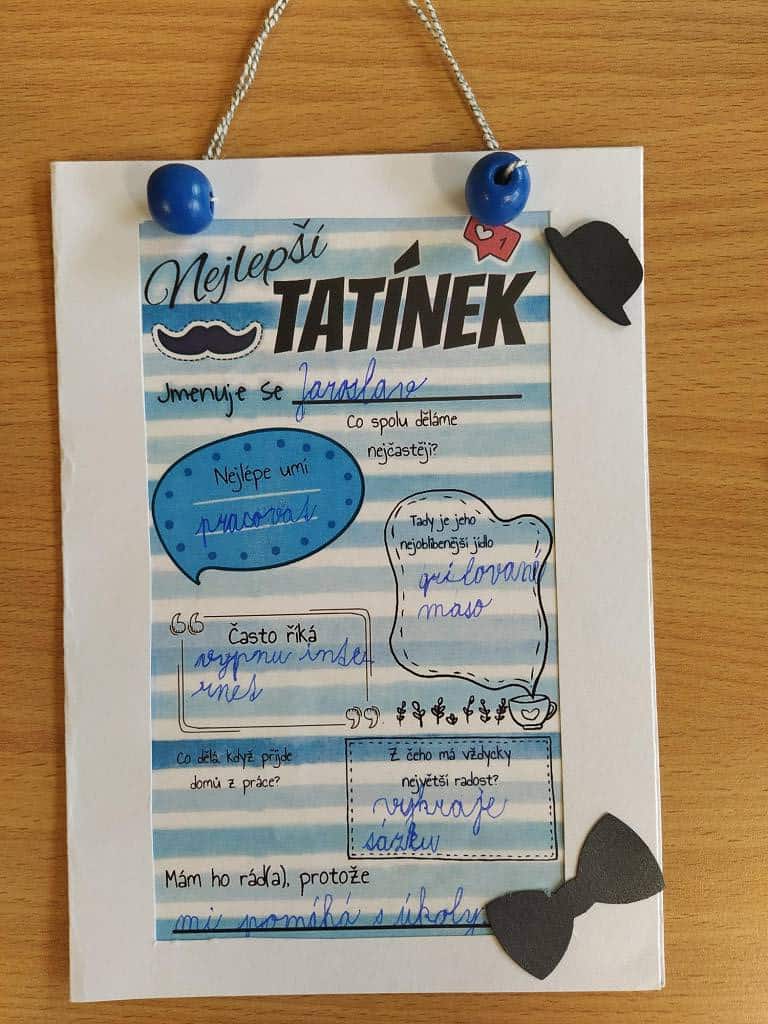 Nejlepší
TATÍNEK
1
Jmenuje se Jaroslav
Co spolu děláme
nejčastěji?
Nejlépe umí
pracovat
Tady je jeho
nejoblíbenější jídlo
grilované
maso
Často říká
vypnu inte
rnet
Co dělá, když přijde
domů z práce?
Z čeho má vždycky
největší radost?
vyhraje
sázku
Mám ho rád(a), protože
mi pomáhá s úkoly